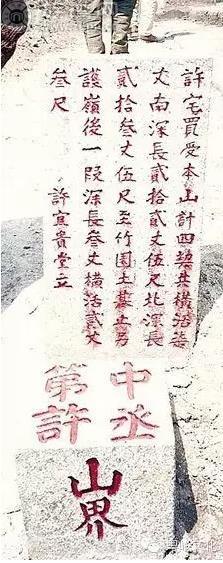 許宅買受本山計四契共橫活
丈南深長貳拾貳丈伍尺北深長
貳拾叁丈伍尺至竹園土墓止另
護嶺後一段深長叁丈橫活貳丈
叁尺 許宜貴堂立
中丞
第許
山界